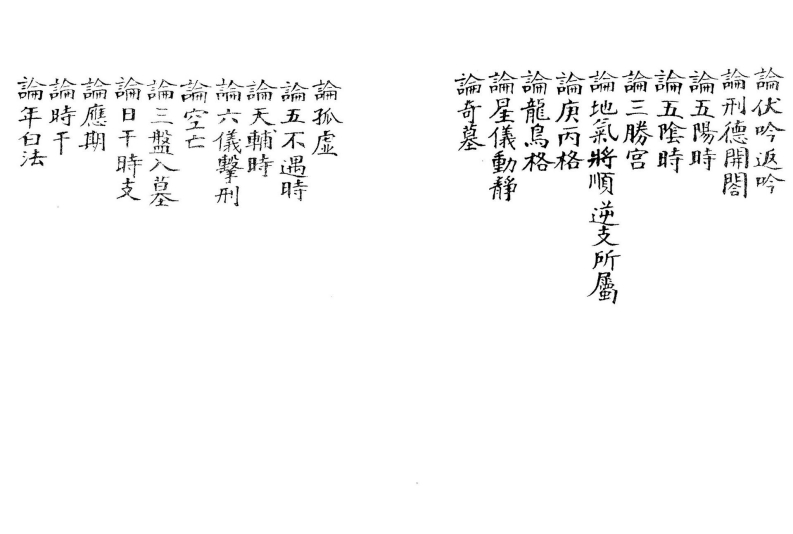 論伏吟返吟
論刑德開闔
論五陽時
論五陰時
論三勝宮
論地氣將順逆支所屬
論庚丙格
論龍鳥格
論星儀動靜
論奇墓
論孤虛
論五不遇時
論天輔時
論六儀擊刑
論空亡
論三盤入墓
論日干時支
論應期
論時干
論年白法